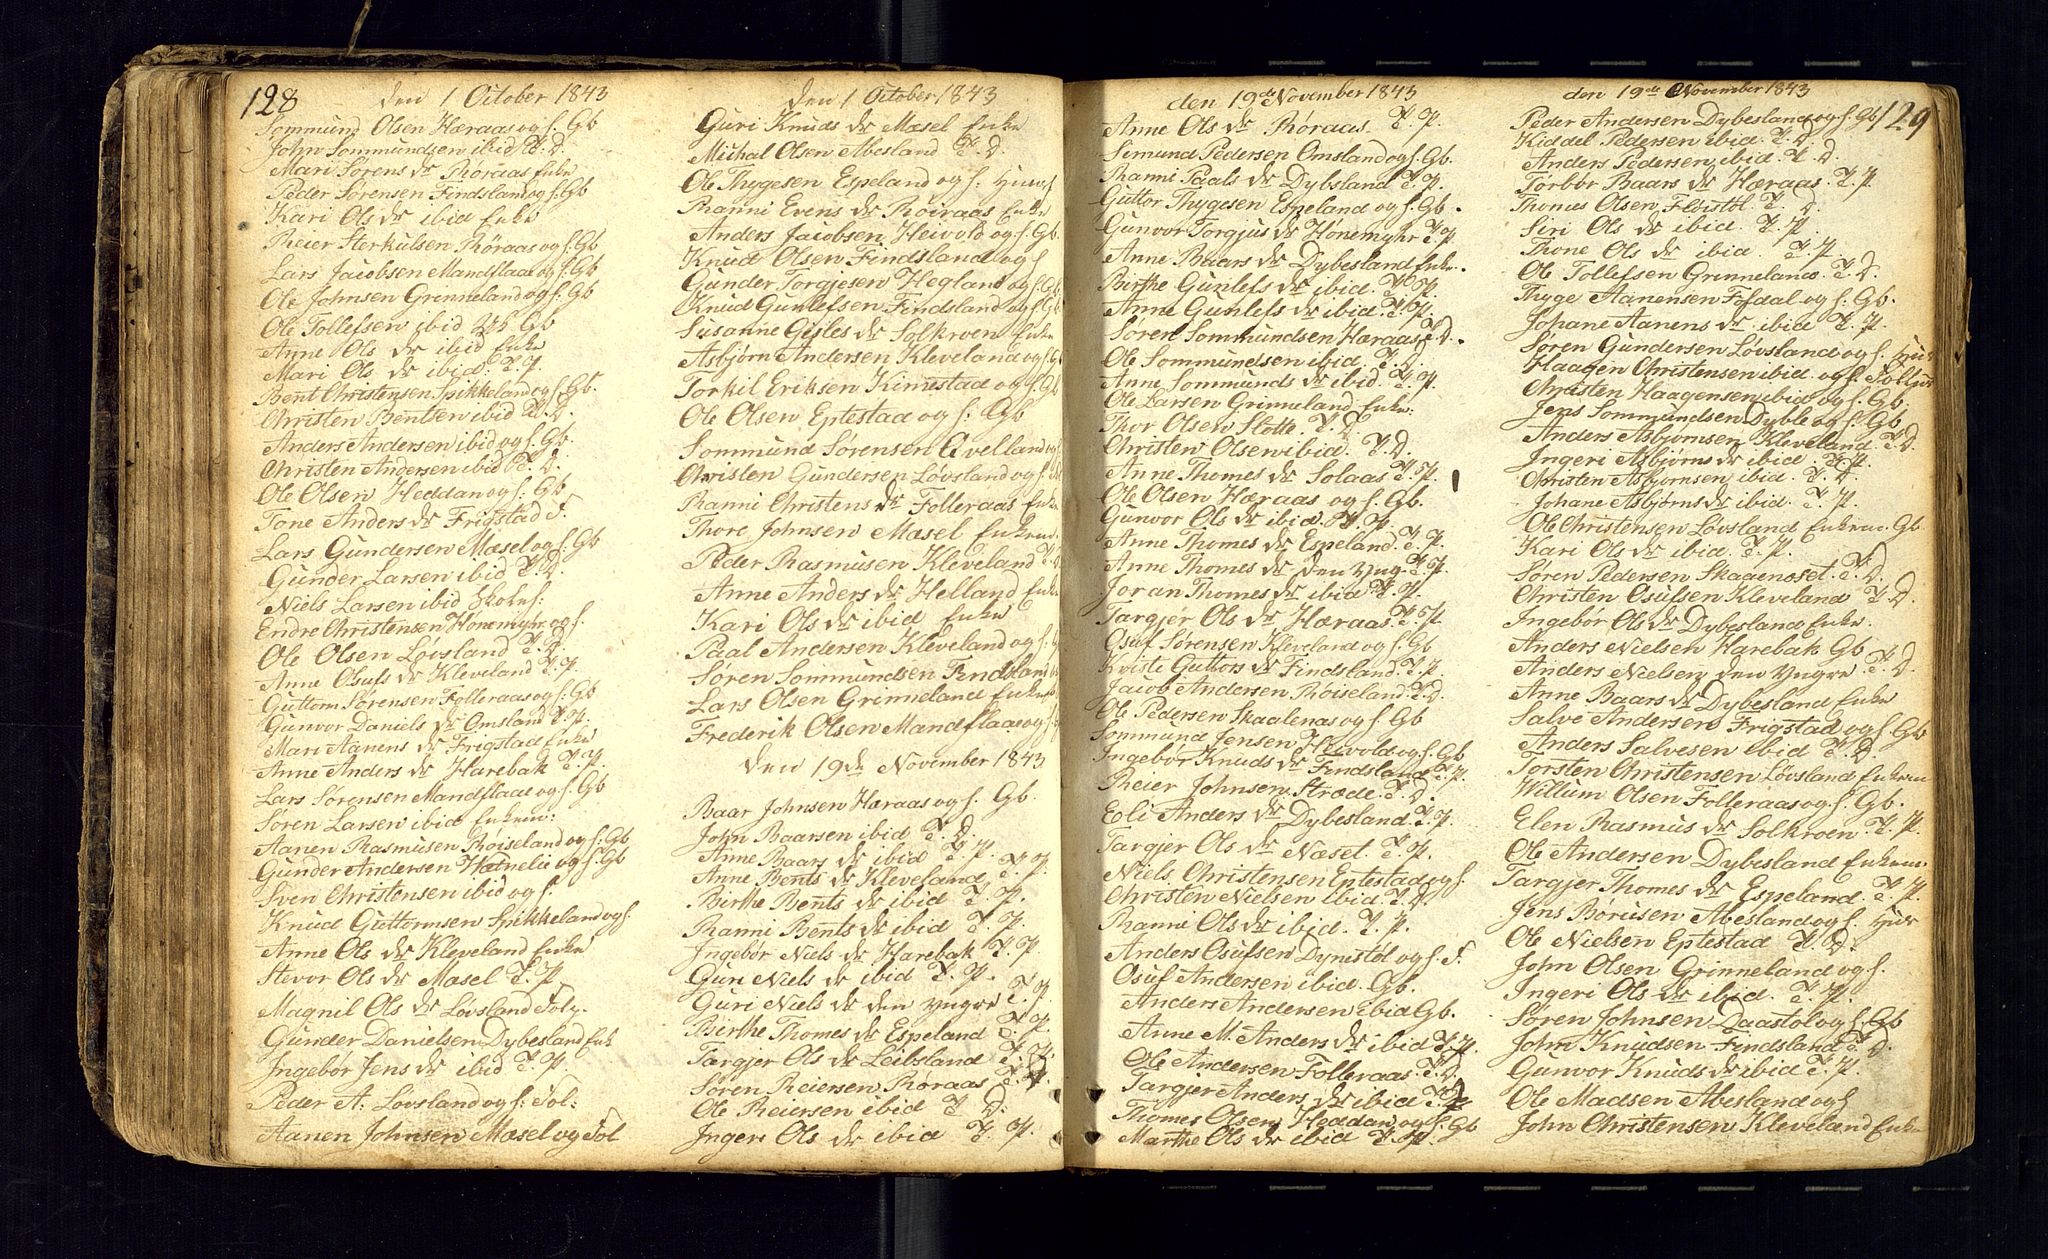 128
den 1 October 1843
Sommund Olsen Hæraas og f. Gb
John Sommundsen ibid T. D.
Mari Sørens Dr Røraas Enke
Peder Sørensen Findsland og f. Gb
Kari Ols Dr ibid Enke
Reier Sterkulsen Røraas og f. Gb
Lars Jacobsen Mandflaae og f. Gb
Ole Johnsen Grinneland og f. Gb
Ole Tollefsen ibid Gb
Anne Ols Dr ibid Enke
Mari Ols Dr ibid T. P.
Bent Christensen Spikkeland og f. Gb.
Christen Bentsen ibid T. D.
Anders Andersen ibid og f. Gb.
Christen Andersen ibid T. D.
Ole Olsen Heddan og f. Gb
Tone Anders Dr Frigstad F.
Lars Gundersen Mæsel og f. Gb
Gunder Larsen ibid T. D.
Niels Larsen ibid Skolh:
Endre Christensen Hønemyhr og f.
Ole Olsen Løvsland T. D.
Anne Osufs Dr Kleveland T. P.
Guttorm Sørensen Folleraas og f. Gb
Gunvor Daniels Dr Omsland T. P.
Mari Aanens Dr Frigstad Enke
Anne Anders Dr Harebak T. P.
Lars Sørensen Mandflaae og f. Gb
Søren Larsen ibid Enkem:
Aanen Rasmusen Røiseland og f. Gb
Gunder Andersen Hætnelie og f. Gb
Sven Christensen ibid og f.
Knud Guttormsen Spikkeland og f.
Anne Ols Dr Kleveland Enke
Stevor Ols Dr Mæsel T. P.
Magnil Ols Dr Løvsland Tol.
Gunder Danielsen Dybesland Enk
Ingebør Jens Dr ibid T. P.
Peder A: Løvsland og f: Fol:
Aanen Johnsen Mæsel og Fol
den 1 October 1843
Guri Knuds Dr Mæsel Enke
Michal Olsen Abesland T. D.
Ole Thygesen Espeland og f. Huusf
Ranni Evens Dr Røiraas Enke
Anders Jacobsen Heivold og f. Gb
Knud Olsen Findsland og f
Gunder Torgjesen Hegland og f. Gb
Knud Gunlefsen Findsland og f. Gb
Susanne Gisles Dr Solkroen Enke
Asbjørn Andersen Kleveland og f. G
Torkil Eriksen Kimestad og f. Gb
Ole Olsen Eptestad og f. Gb
Sommund Sørensen Qvelland og f
Christen Gundersen Løvsland og f.
Ranni Christens Dr Folleraas Enke
Thore Johnsen Mæsel Enkem
Peder Rasmusen Kleveland T. D.
Anne Anders Dr Helland Enke
Kari Ols Dr ibid Enke
Paal Andersen Kleveland og f.
Søren Sommundsen Findsland
Lars Olsen Grinneland Enkem
Frederik Olsen Mandflaae og f
den 19de November 1843
Baar Johnsen Hæraas og f. Gb
John Baarsen ibid T. D.
Anne Baars Dr ibid T. P.
Anne Bents Dr Kleveland T. P.
Birthe Bents Dr ibid T. P.
Ranni Bents Dr ibid T. P.
Ingebør Niels Dr Harebak T. P.
Guri Niels Dr ibid T. P.
Guri Niels Dr den Yngre T. P.
Birthe Thomes Dr Espeland T. P.
Targjer Ols Dr Leibsland T. P.
Søren Reiersen Røraas T. D.
Ole Reiersen ibid T. D.
Ingeri Ols Dr ibid T. P.
den 19de November 1843
Anne Ols Dr Røraas. T. P.
Simund Pedersen Omsland og f. Gb.
Ranni Paals Dr Dybsland T. P.
Guttor Thygesen Espeland og f. Gb.
Gunvor Torgjus Dr Hønemyhr T. P.
Anne Baars Dr Dybesland Enke.
Birthe Gunlefs Dr ibid. T. P.
Anne Gunlefs Dr ibid. T. P.
Søren Sommundsen Haraas T. D.
Ole Sommundsen ibid. T. D.
Anne Sommunds Dr ibid. T. P.
Ole Larsen Grinneland Enke:
Thor Olsen Slotte. T. D.
Christen Olsen ibid. T. D.
Anne Thomes Dr Solaas T. P.
Ole Olsen Hæraas og f. Gb.
Gunvor Ols Dr ibid. T. P.
Anne Thomes Dr Espeland. T. P.
Anne Thomes Dr den Yng. T. P.
Joran Thomes Dr ibid T. P.
Targjer Ols Dr Hæraas T. P.
Osuf Sørensen Kleveland og f. Gb
Kviste Guttors Dr Findsland. T. P.
Jacob Andersen Røiseland. T. D.
Ole Pedersen Skaalenas og f. Gb
Sommund Jensen Heivold og f. Gb
Ingebør Knuds Dr Findsland T. P.
Reier Johnsen Strøde. T. D.
Eoli Anders Dr Dybesland T. P.
Targjer Ols Dr Næset. T. P.
Niels Christensen Eptestad og f.
Christen Nielsen ibid. T. D
Ranni Ols Dr ibid. T. P.
Anders Osufsen Dynestøl og f. F.
Osuf Andersen ibid. Gb.
Anders Andersen ibid Gb.
Anne M. Anders Dr ibid T. P.
Ole Andersen Folleraas. T. D.
Targjer Anders Dr ibid T. P.
Thomes Olsen Heddan og f. Gb
Marthe Ols Dr ibid T. P.
den 19de November 1843
129
Peder Andersen Dybesland og f. Gb
Kiddel Pedersen ibid. T. D
Anders Pedersen ibid. T. D.
Torbør Baars Dr Hæraas. T. P.
Thomes Olsen Fløistøl. T. D.
Siri Ols Dr ibid. T. P.
Thone Ols Dr ibid. T. P.
Ole Tollefsen Grinneland. T. D.
Thyge Aanensen Fosdal og f. Gb.
Johane Aanens Dr ibid T. P.
Søren Gundersen Løvsland og f. Huus
Haagen Christensen ibid og f. Foll
Christen Haagensen ibid og f. Gb.
Jens Sommundsen Dyble og f. Gb.
Anders Asbjørnsen Kleveland T. D
Ingeri Asbjørns Dr ibid. T. P.
Christen Asbjørnsen ibid. T. D.
Johane Asbjørns Dr ibid. T. P.
Ole Christensen Løvsland Enkem. Gb
Kari Ols Dr ibid. T. P.
Søren Pedersen Skagenoset. T. D.
Christen Osufsen Kleveland T. D.
Ingebør Ols Dr Dybesland Enke.
Anders Nielsen Harebak Gb
Anders Nielsen den Yngre T. D.
Anne Baars Dr Dybesland Enke
Salve Andersen Frigstad og f. Gb
Anders Salvesen ibid T. D.
Torsten Christensen Løvsland Enkem
Willum Olsen Folleraas og f. Gb.
Elen Rasmus Dr Solkroen. T. P.
Ole Andersen Dybesland Enkem.
Targjer Thomes Dr Espeland. T. P.
Jens Børusen Abesland og f. Huus
Ole Nielsen Eptestad T. D.
John Olsen Grinneland og f.
Ingeri Ols Dr ibid. T. P.
Søren Johnsen Daastøl og f. Gb
John Knudsen Findsland T. D.
Gunvor Knuds Dr ibid T. P.
Ole Madsen Abesland og f
John Christensen Kleveland Enkem